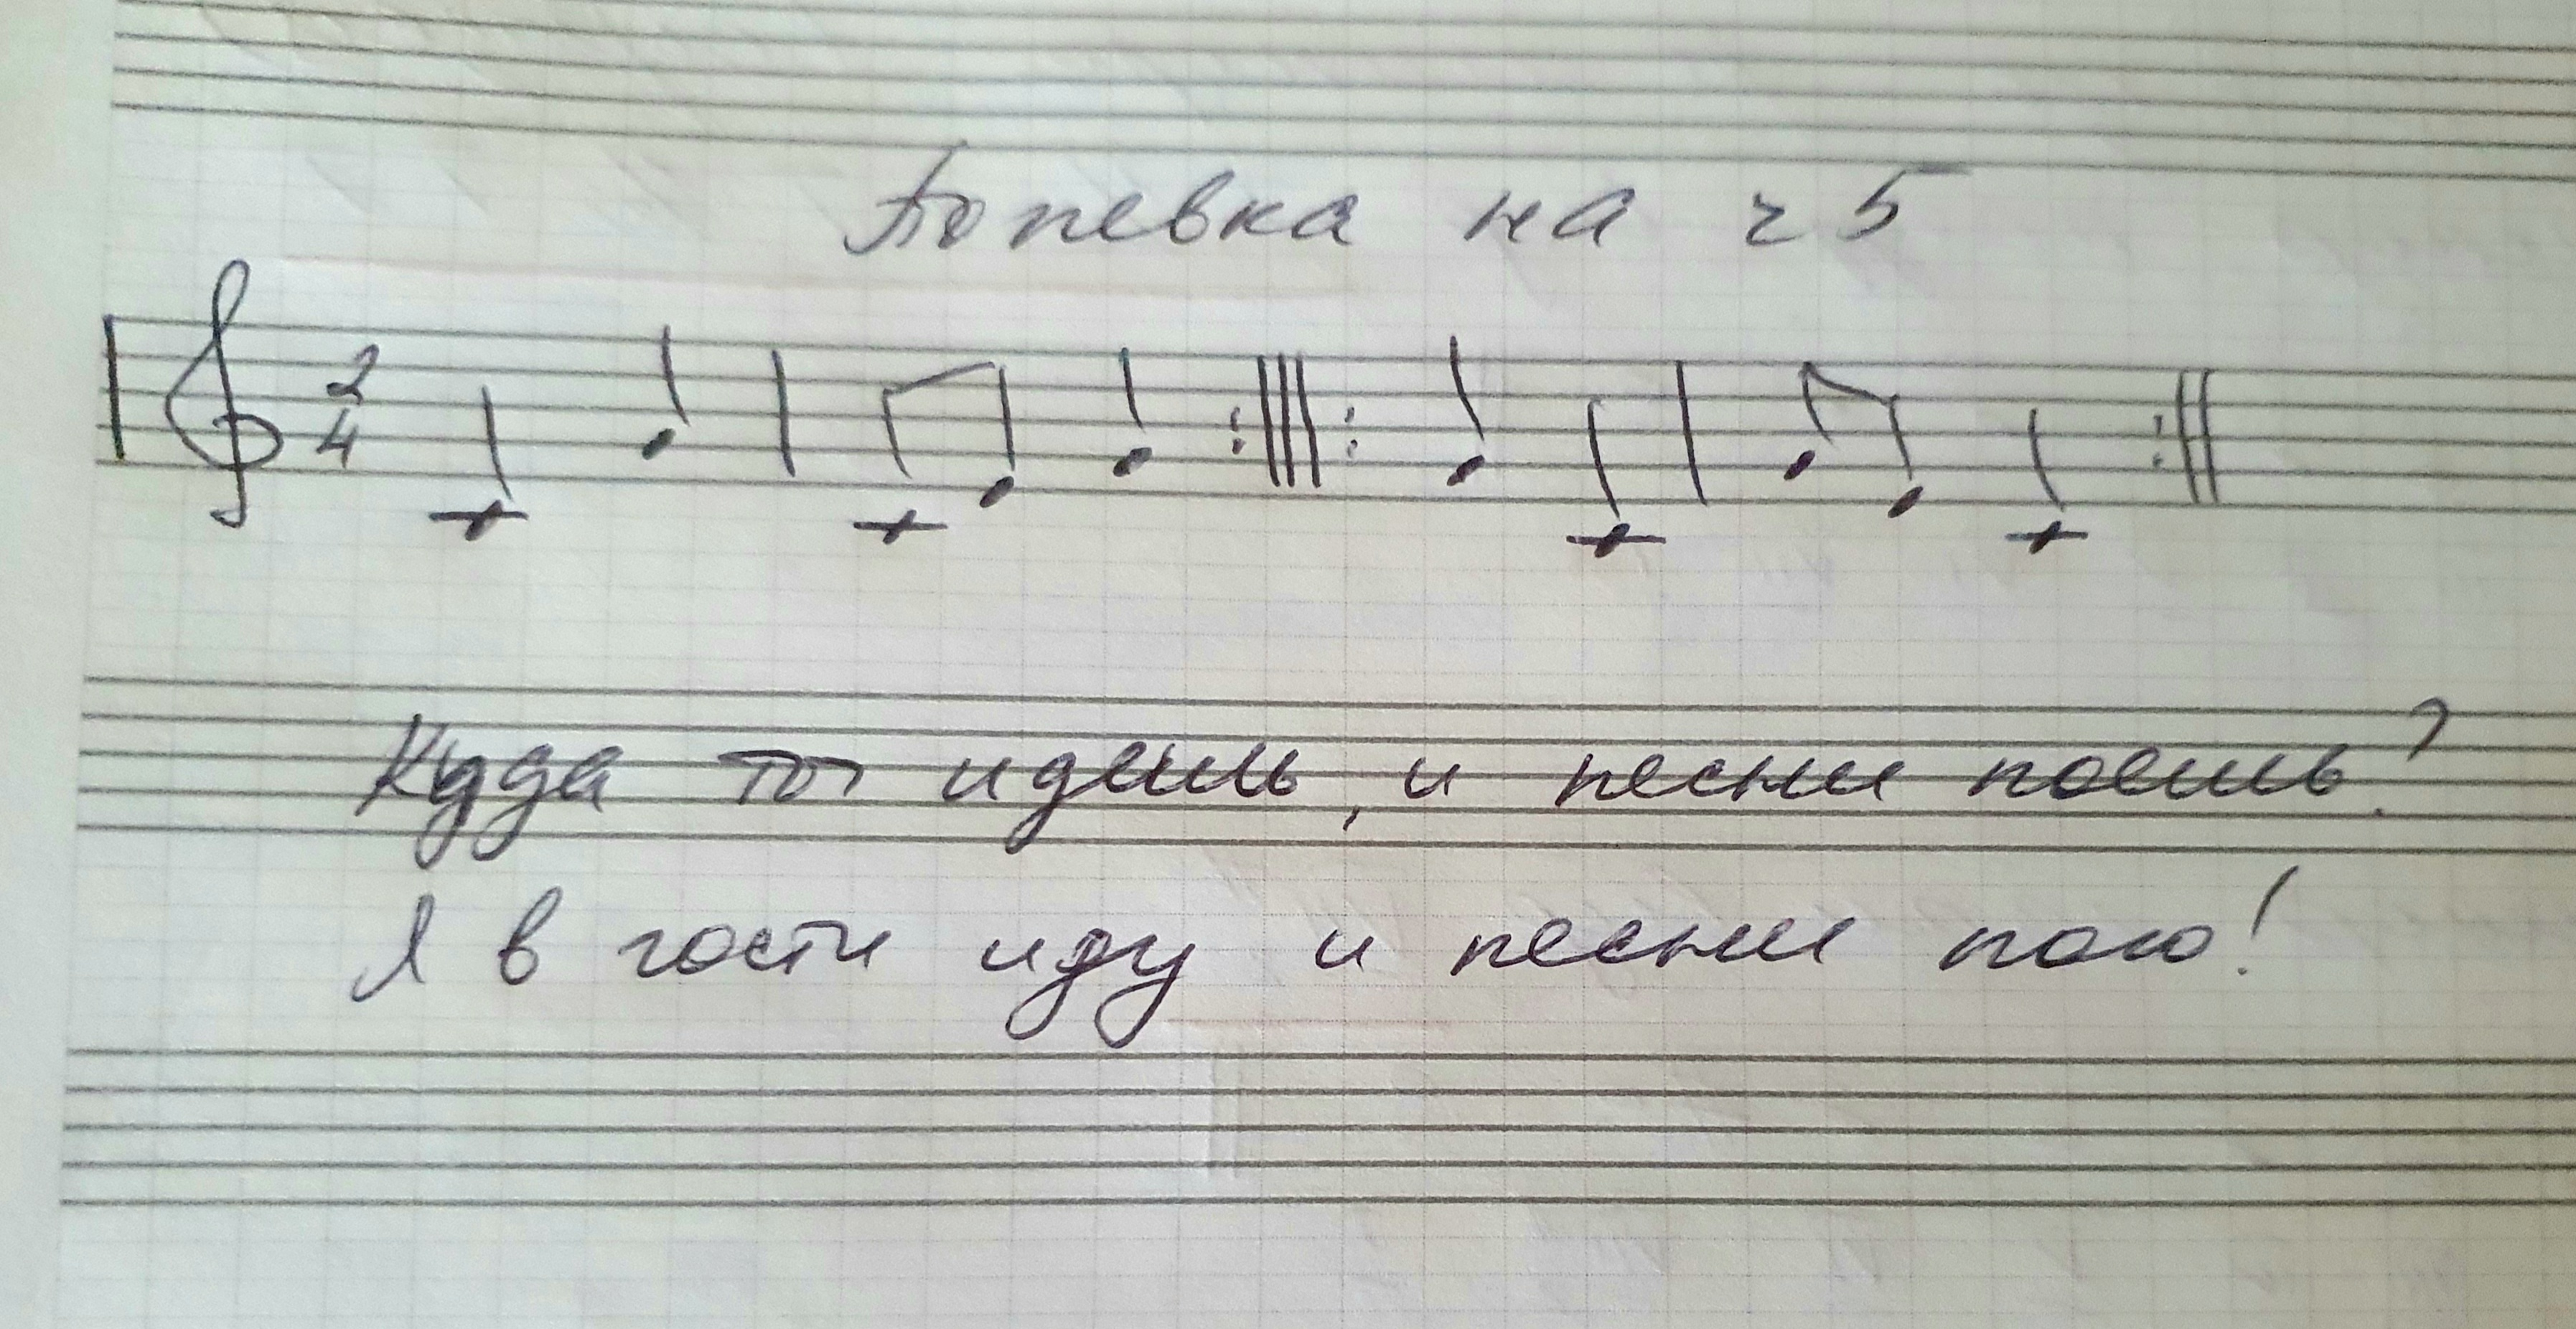 Попевка на ч5
2
4
Куда ты идешь, и песни поешь?
Я в гости иду и песни пою!